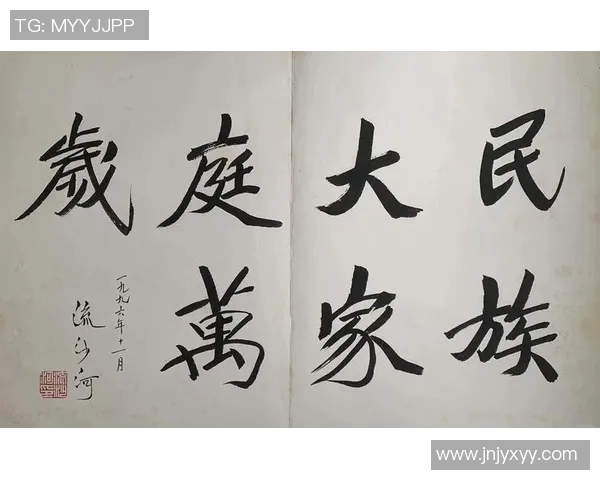 TG: MYYJJPP
民族
大家
庭萬
歲
一九九六年十一月
流沙河
www.jnjyxyy.com